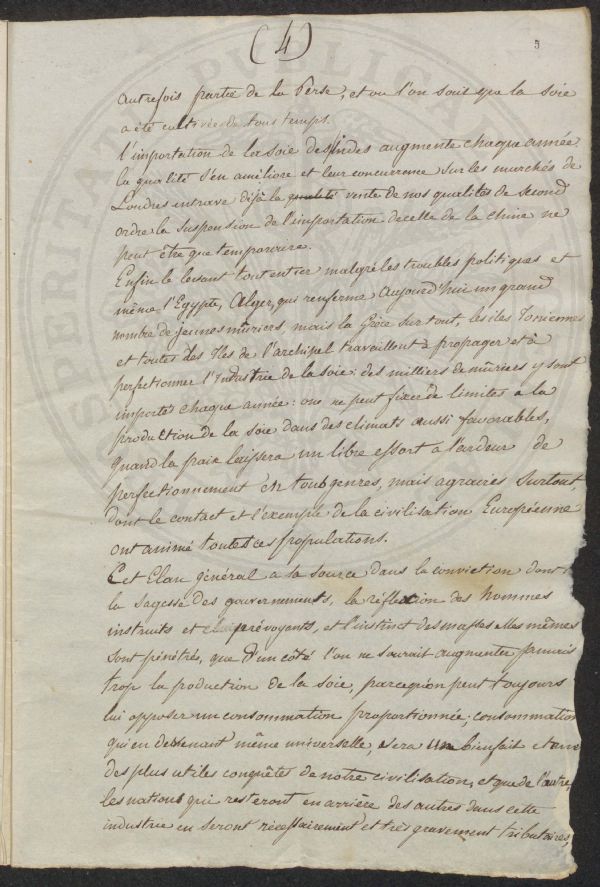 (4)
5
autrefois partie de la Perse, et ou l'on sait que la soie
a été cultivée de tous temps.
l'importation de la soie des indes augmente chaque année.
la qualité s'en améliore et leur concurrance sur les marchés de
Londres entrave déjà la qualité vente de nos qualités de second
ordre la suspension de l'importation de celle de la Chine ne
peut être que temporaire.
Enfin le levant tout entier malgré les troubles politiques et
même l'Egypte, Alger, qui renferme aujourd'hui un grand
nombre de jeunes mûriers, mais la Grèce surtout, les iles Ioniennes
et toutes les Iles de l'archipel travaillent à propager et à
perfectionner l'Industrie de la soie: des milliers de mûriers y sont
importés chaque année: on ne peut fixer de limites a la
production de la soie dans des climats aussi favorables,
quand la paix laissera un libre essort a l'ardeur de
perfectionnement en tous genres, mais agraires surtout,
dont le contact et l'exemple de la civilisation Européenne
ont animé toutes ces populations.
Cet Elan général a sa source dans la conviction dont
la sagesse des gouvernements, la réflexion des hommes
instruits et prévoyants, et l'instinct des masses elles mêmes
sont pénétrés, que d'un côté l'on ne saurait augmenter jamais
trop la production de la soie, parcequ'on peut toujours
lui opposer un consommation proportionnée; consommation
qui en devenant même universelle, sera un bienfait et une
des plus utiles conquêtes de notre civilisation, et que de l'autre,
les nations qui resteront en arrière des autres dans cette
industrie en seront nécessairement et très gravement tributaires,